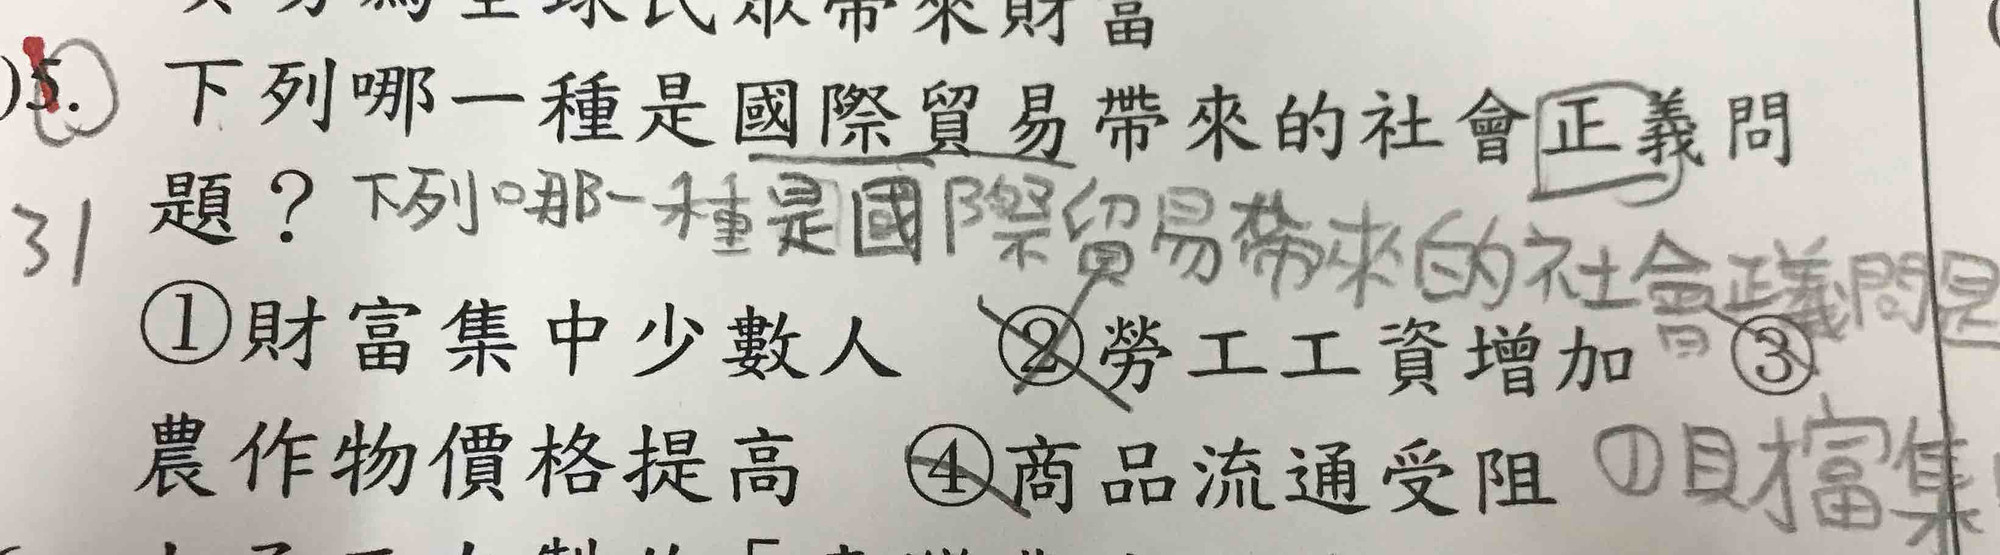 為全球民眾帶來財富
)5. 下列哪一種是國際貿易帶來的社會正義問
題？下列哪一種是國際貿易帶來的社會正義問是
31
①財富集中少數人 ②勞工工資增加 ③
農作物價格提高 ④商品流通受阻 ①財富集